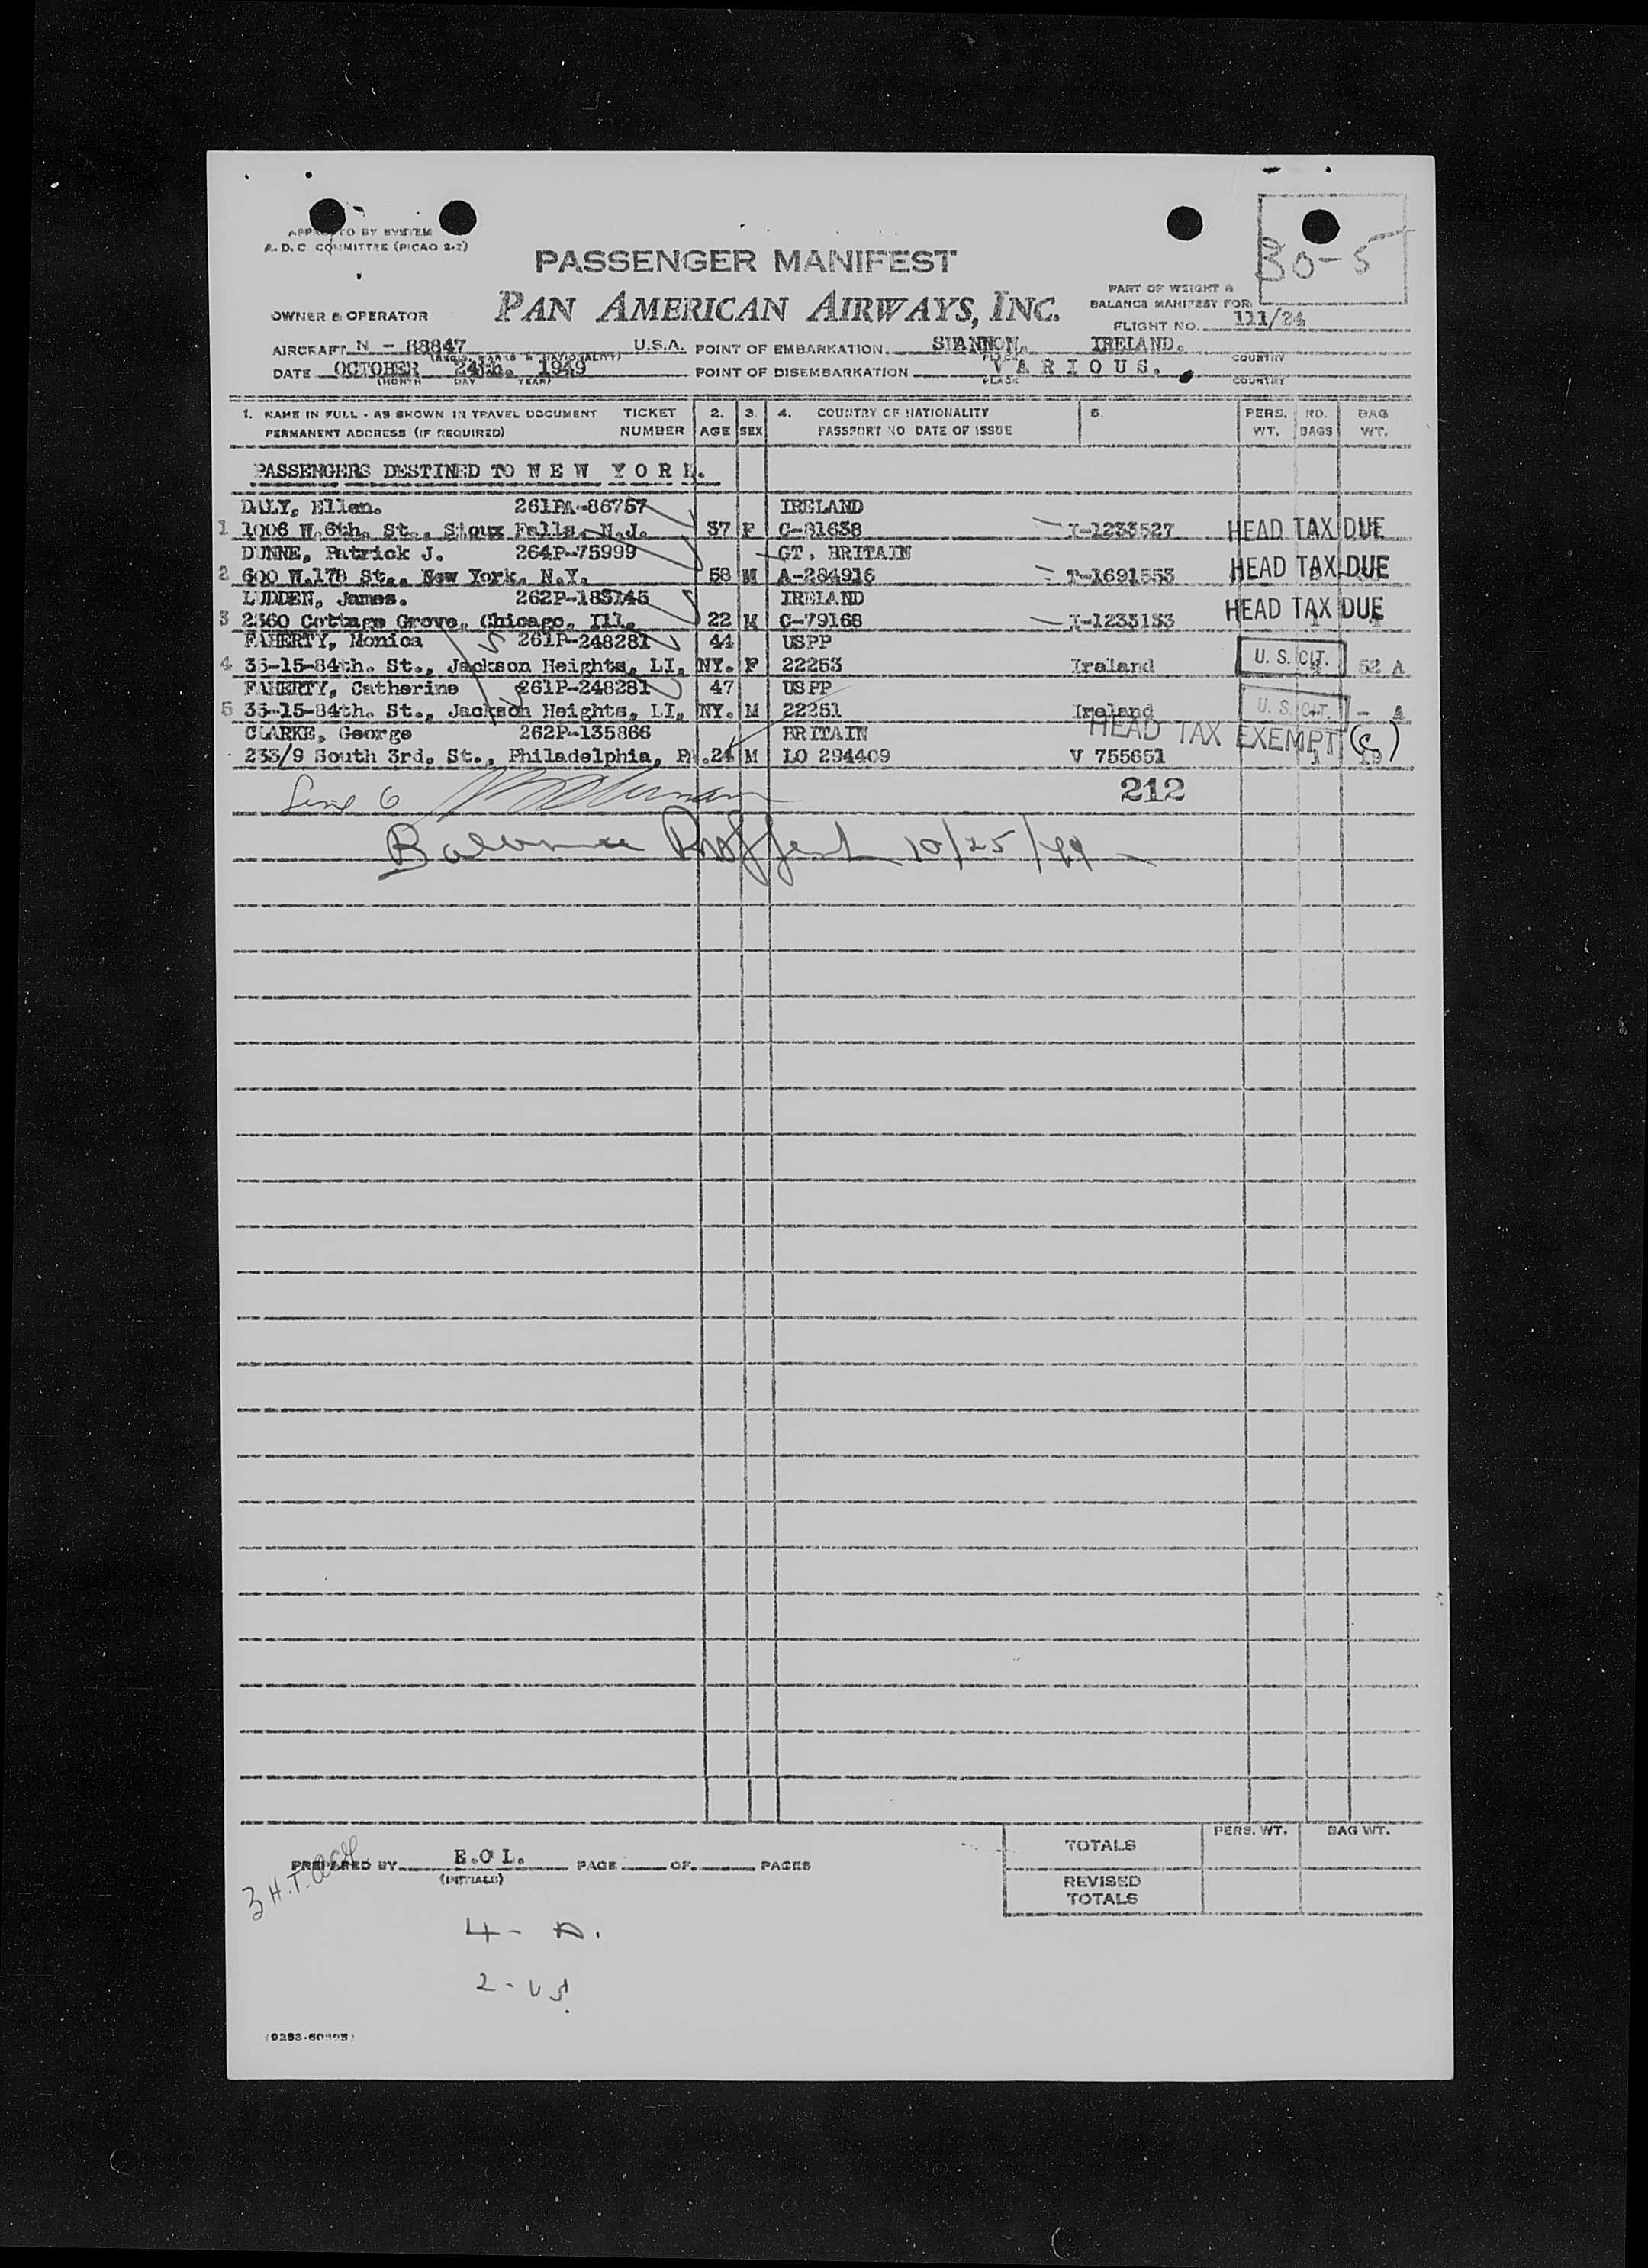 A.D.C COMMITTEE (PICAO 2-2)
30-5
PASSENGER MANIFEST
PAN AMERICAN AIRWAYS, INC.
PART OF WEIGHT &
BALANCE MANIFEST FOR
OWNER & OPERATOR
FLIGHT NO. 111/24
AIRCRAFT N - 88847 U.S.A. POINT OF EMBARKATION SHANNON. IRELAND.
PLACE COUNTRY
DATE OCTOBER 24th. 1949 POINT OF DISEMBARKATION V A R I O U S.
(MONTH DAY YEAR) PLACE COUNTRY
1. NAME IN FULL - AS SHOWN IN TRAVEL DOCUMENT TICKET 2. 3. 4. COUNTRY OF NATIONALITY 5. PERS. NO. BAG
PERMANENT ADDRESS (IF REQUIRED) NUMBER AGE SEX PASSPORT NO DATE OF ISSUE WT. BAGS WT.
PASSENGERS DESTINED TO N E W Y O R K.
DALY, Ellen. 261PA-86757 IRELAND
1 1006 W.6th. St., Sioux Falls, N.J. 37 F C-81638 I-1233527 HEAD TAX DUE
DUNNE, Patrick J. 264P-75999 GT. BRITAIN
2 600 W.178 St., New York, N.Y. 58 M A-284916 -1691553 HEAD TAX DUE
LUDDEN, James. 262P-183145 IRELAND
3 2560 Cottage Grove, Chicago, Ill. 22 M C-79168 I-1233153 HEAD TAX DUE
FAHERTY, Monica 261P-248281 44 USPP
4 35-15-84th. St., Jackson Heights, LI, NY. F 22253 Ireland U. S. CIT. 52 A
FAHERTY, Catherine 261P-248281 47 USPP
5 35-15-84th. St., Jackson Heights, LI, NY. M 22251 Ireland U. S. CIT. - A
CLARKE, George 262P-135866 BRITAIN HEAD TAX EXEMPT (c)
233/9 South 3rd. St., Philadelphia, PA. 24 M LO 294409 V 755651 1 19
Line 6 212
10/25/49
TOTALS PERS. WT. BAG WT.
PREPARED BY E.O L. PAGE OF PAGES
(INITIALS)
REVISED
TOTALS
3 H.T.
4 - A.
2 - US.